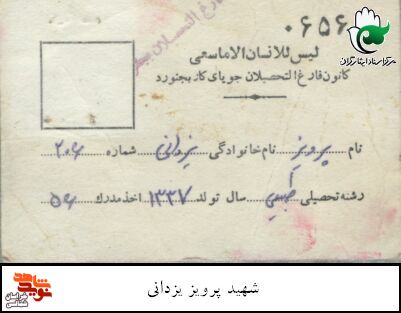 ۰۶۵۶
مرکز اسناد ایثارگران
لیس للانسان الاماسعی
کانون فارغ التحصیلان جویای کار بجنورد
نام پرویز نام خانوادگی یزدانی شماره ۲۰۶
رشته تحصیلی طبیعی سال تولد ۱۳۳۷ اخذ مدرك ۵۶
شهید پرویز یزدانی
نوید شاهد
خراسان شمالی